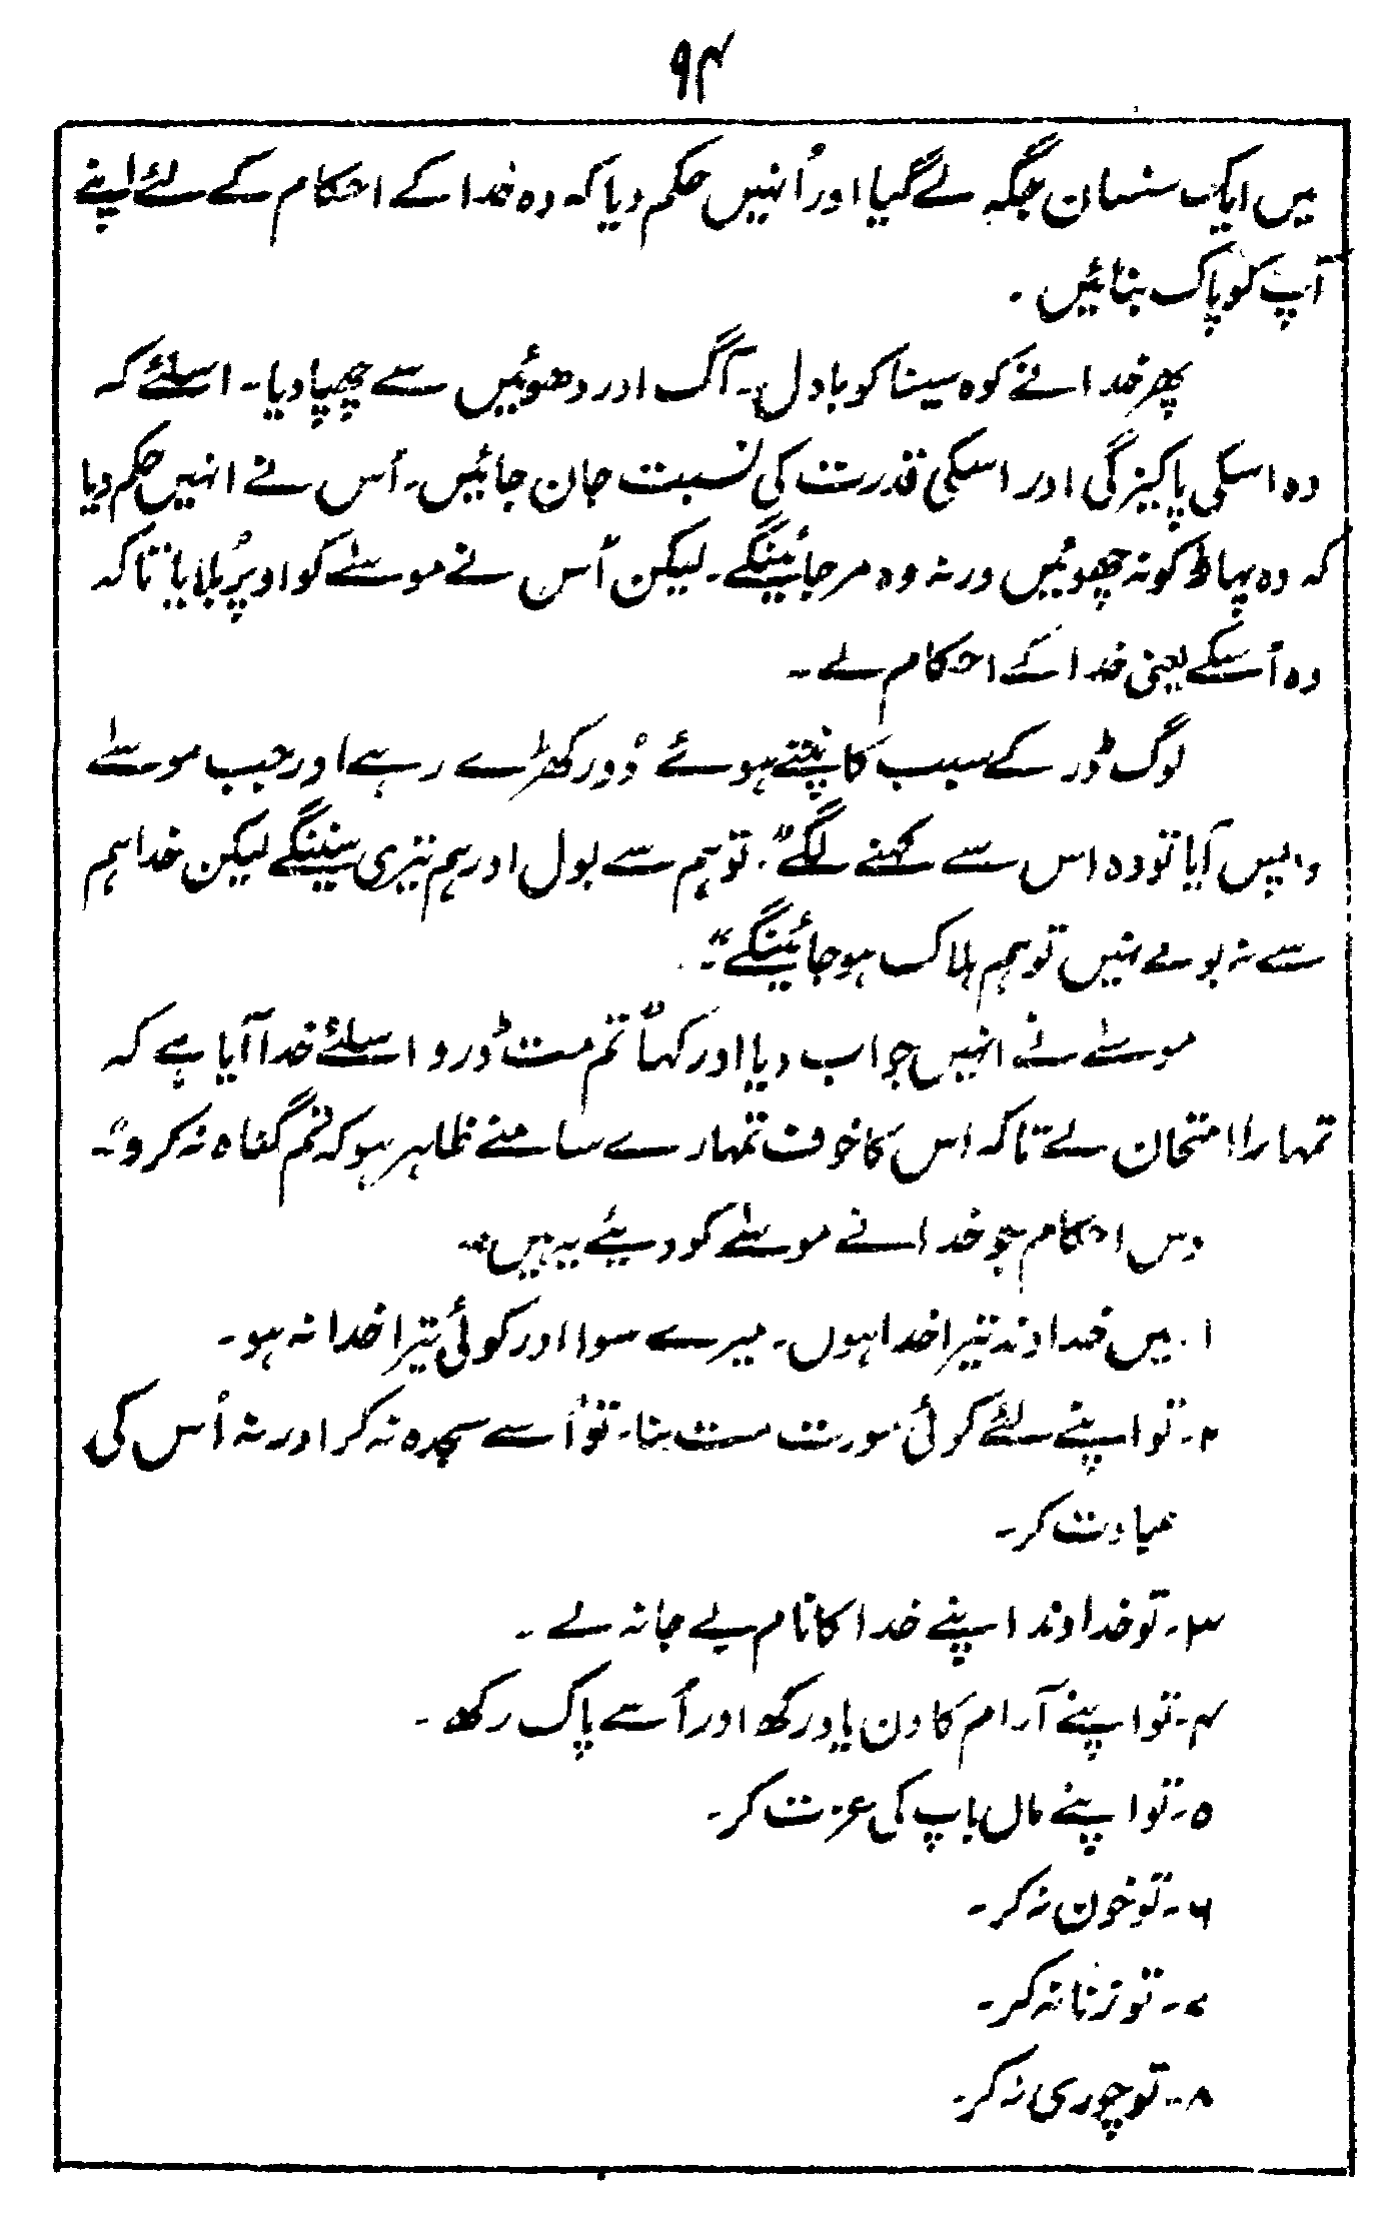 ۹۴
میں ایک سنسان جگہ لے گیا اور اُنہیں حکم دیا کہ وہ خدا کے احکام کے لئے اپنے
آپ کو پاک بنائیں ۔
پھر خدا نے کوہ سینا کو بادل ۔ آگ اور دھوئیں سے چھپا دیا ۔ اسلئے کہ
وہ اسکی پاکیزگی اور اسکی قدرت کی نسبت جان جائیں ۔ اُس نے انہیں حکم دیا
کہ وہ پہاڑ کو نہ چھوئیں ورنہ وہ مر جائینگے ۔ لیکن اُس نے موسٰے کو اوپر بُلایا تاکہ
وہ اُسکے یعنی خدا کے احکام لے ۔
لوگ ڈر کے سبب کانپتے ہوئے دُور کھڑے رہے اور جب موسٰے
واپس آیا تو وہ اس سے کہنے لگے " تو ہم سے بول اور ہم تیری سنینگے لیکن خدا ہم
سے نہ بولے نہیں تو ہم ہلاک ہو جائینگے "۔
موسٰے نے انہیں جواب دیا اور کہا " تم مت ڈرو اسلئے خدا آیا ہے کہ
تمہارا امتحان لے تاکہ اس کا خوف تمہارے سامنے ظاہر ہو کہ تم گناہ نہ کرو "۔
دس احکام جو خدا نے موسٰے کو دیئے یہ ہیں ۔
۱ ۔ میں خداوند تیرا خدا ہوں ۔ میرے سوا اور کوئی تیرا خدا نہ ہو ۔
۲ ۔ تو اپنے لئے کوئی مورت مت بنا ۔ تو اُسے سجدہ نہ کر اور نہ اُس کی
عبادت کر ۔
۳ ۔ تو خداوند اپنے خدا کا نام بے جا نہ لے ۔
۴ ۔ تو اپنے آرام کا دن یاد رکھ اور اُسے پاک رکھ ۔
۵ ۔ تو اپنے ماں باپ کی عزت کر ۔
۶ ۔ تو خون نہ کر ۔
۷ ۔ تو زنا نہ کر ۔
۸ ۔ تو چوری نہ کر ۔